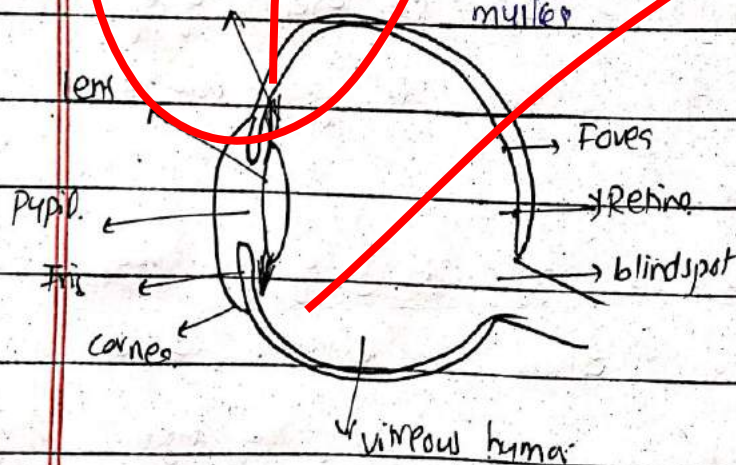 lens
Foves
Pupil.
Retina
Iris
blindspot
cornea
vitreous humar